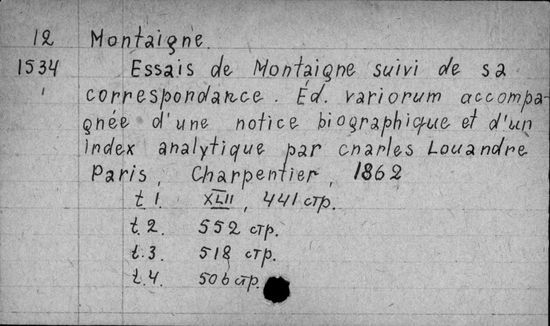 12 Montaigne.
1534 Essais de Montaigne suivi de sa
correspondance. Éd. variorum accompa-
gnée d'une notice biographique et d'un
index analytique par charles Louandre
Paris, Charpentier, 1862
t 1. XLII, 441 стр.
t. 2. 552 стр.
t. 3. 518 стр.
t. 4. 506 стр.